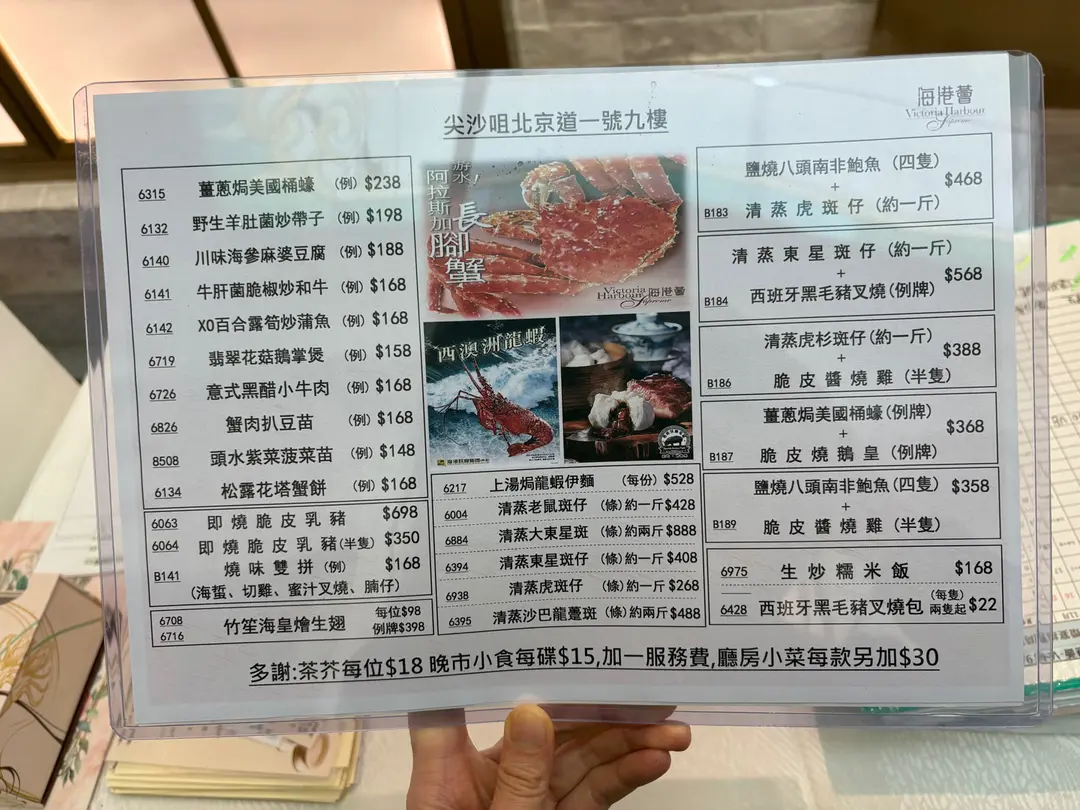 海港薈
Victoria Harbour
Supreme
尖沙咀北京道一號九樓
6315 薑蔥焗美國桶蠔 (例) $238
6132 野生羊肚菌炒帶子 (例) $198
6140 川味海參麻婆豆腐 (例) $188
6141 牛肝菌脆椒炒和牛 (例) $168
6142 XO百合露筍炒蒲魚 (例) $168
6719 翡翠花菇鵝掌煲 (例) $158
6726 意式黑醋小牛肉 (例) $168
6826 蟹肉扒豆苗 (例) $168
8508 頭水紫菜菠菜苗 (例) $148
6134 松露花塔蟹餅 (例) $168
6063 即燒脆皮乳豬 $698
6064 即燒脆皮乳豬(半隻) $350
B141 燒味雙拼(例) $168
(海蜇、切雞、蜜汁叉燒、腩仔)
6708 6716 竹笙海皇燴生翅 每位$98
例牌$398
游水!
阿拉斯加
長腳蟹
Victoria Harbour 海港薈
Supreme
西澳洲龍蝦
6217 上湯焗龍蝦伊麵 (每份) $528
6004 清蒸老鼠斑仔 (條)約一斤 $428
6884 清蒸大東星斑 (條)約兩斤 $888
6394 清蒸東星斑仔 (條)約一斤 $408
6938 清蒸虎斑仔 (條)約一斤 $268
6395 清蒸沙巴龍躉斑 (條)約兩斤 $488
鹽燒八頭南非鮑魚 (四隻)
+ $468
B183 清蒸虎斑仔 (約一斤)
清蒸東星斑仔 (約一斤)
+ $568
B184 西班牙黑毛豬叉燒(例牌)
清蒸虎杉斑仔(約一斤)
+ $388
B186 脆皮醬燒雞 (半隻)
薑蔥焗美國桶蠔(例牌)
+ $368
B187 脆皮燒鵝皇 (例牌)
鹽燒八頭南非鮑魚(四隻) $358
+
B189 脆皮醬燒雞 (半隻)
6975 生炒糯米飯 $168
6428 西班牙黑毛豬叉燒包 (每隻) 兩隻起 $22
多謝:茶芥每位$18 晚市小食每碟$15,加一服務費,廳房小菜每款另加$30